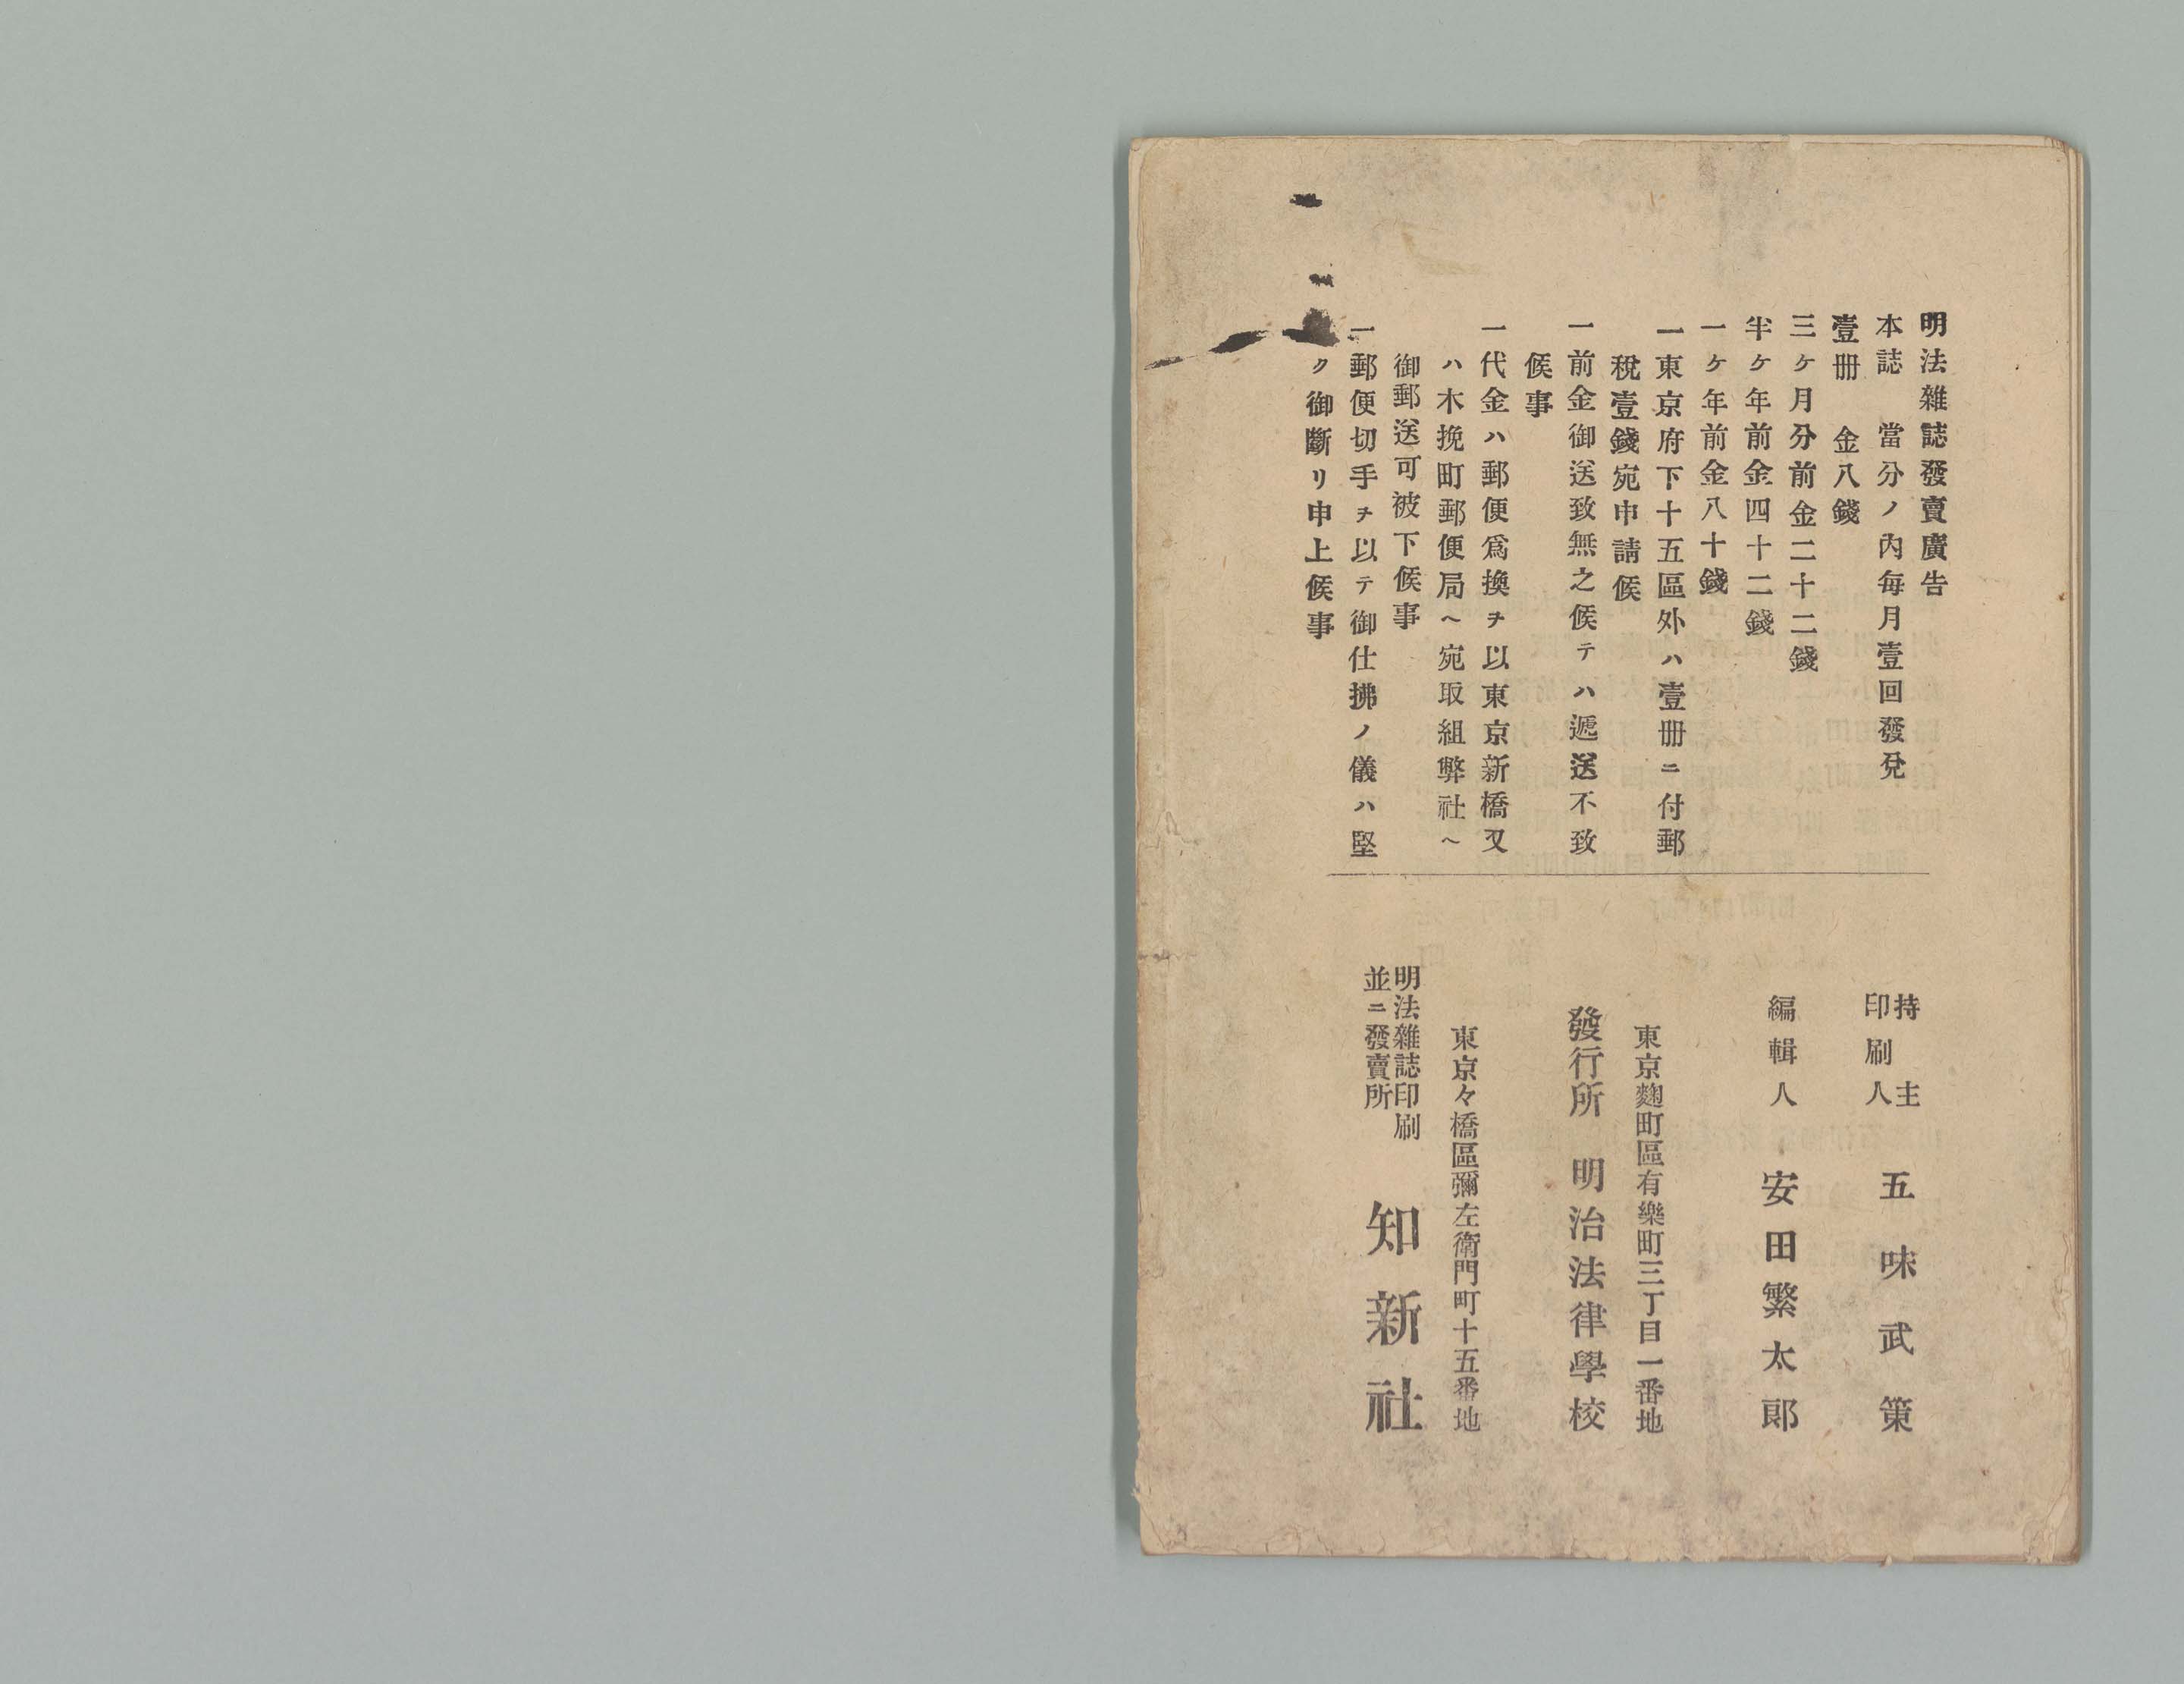 明法雜誌發賣廣告
本誌　當分ノ內每月壹回發兌
壹冊　金八錢
三ヶ月分前金二十二錢
半ヶ年前金四十二錢
一ヶ年前金八十錢
一東京府下十五區外ハ壹冊ニ付郵
稅壹錢宛申請候
一前金御送致無之候テハ遞送不致
候事
一代金ハ郵便爲換ヲ以東京新橋又
ハ木挽町郵便局ヘ宛取組弊社ヘ
御郵送可被下候事
一郵便切手ヲ以テ御仕拂ノ儀ハ堅
ク御斷リ申上候事
持主
印刷人
五味武策
編輯人　安田繁太郞
東京麴町區有樂町三丁目一番地
發行所　明治法律學校
東京々橋區彌左衛門町十五番地
明法雜誌印刷
並ニ發賣所
知新社